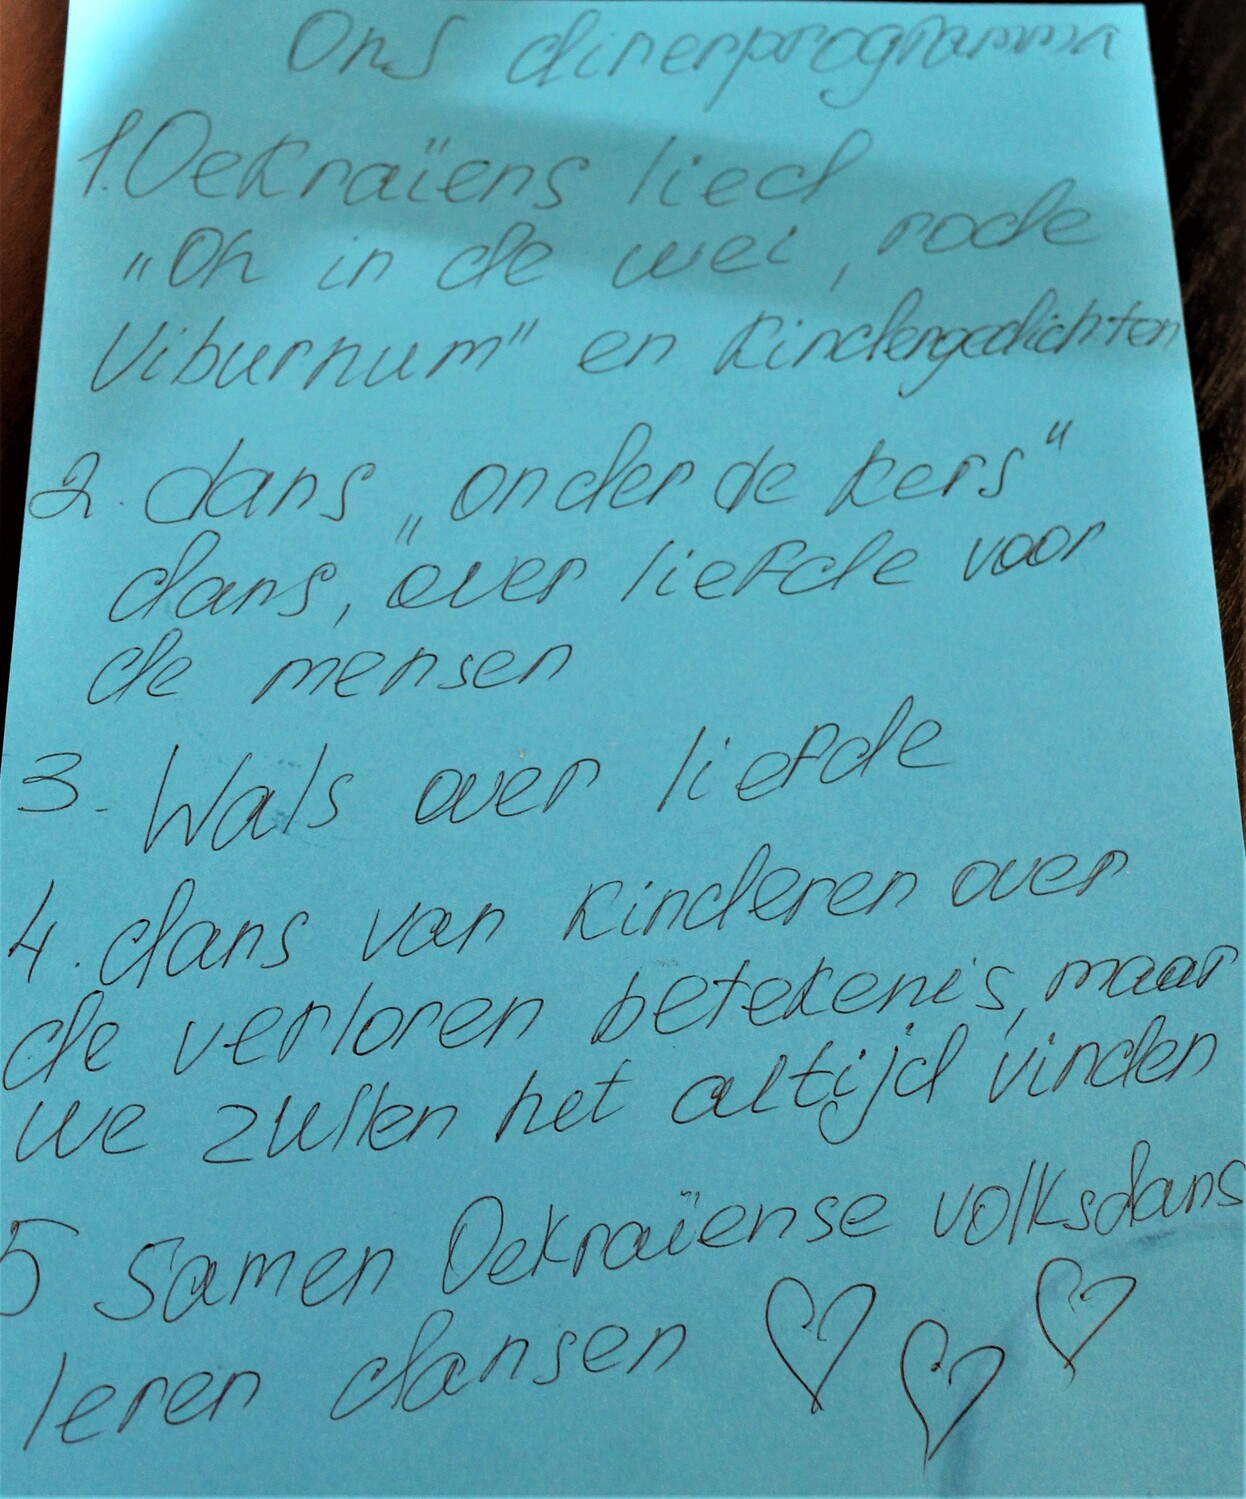 Ons dinerprogramma
1. Oekraïens lied
„Oh in de wei, rode
Viburnum" en kindergedichten
2. dans „onder de kers"
dans, "over liefde voor
de mensen
3. Wals over liefde
4. dans van kinderen over
de verloren betekenis, maar
we zullen het altijd vinden
5 Samen Oekraïense volksdans
leren dansen ♡ ♡ ♡